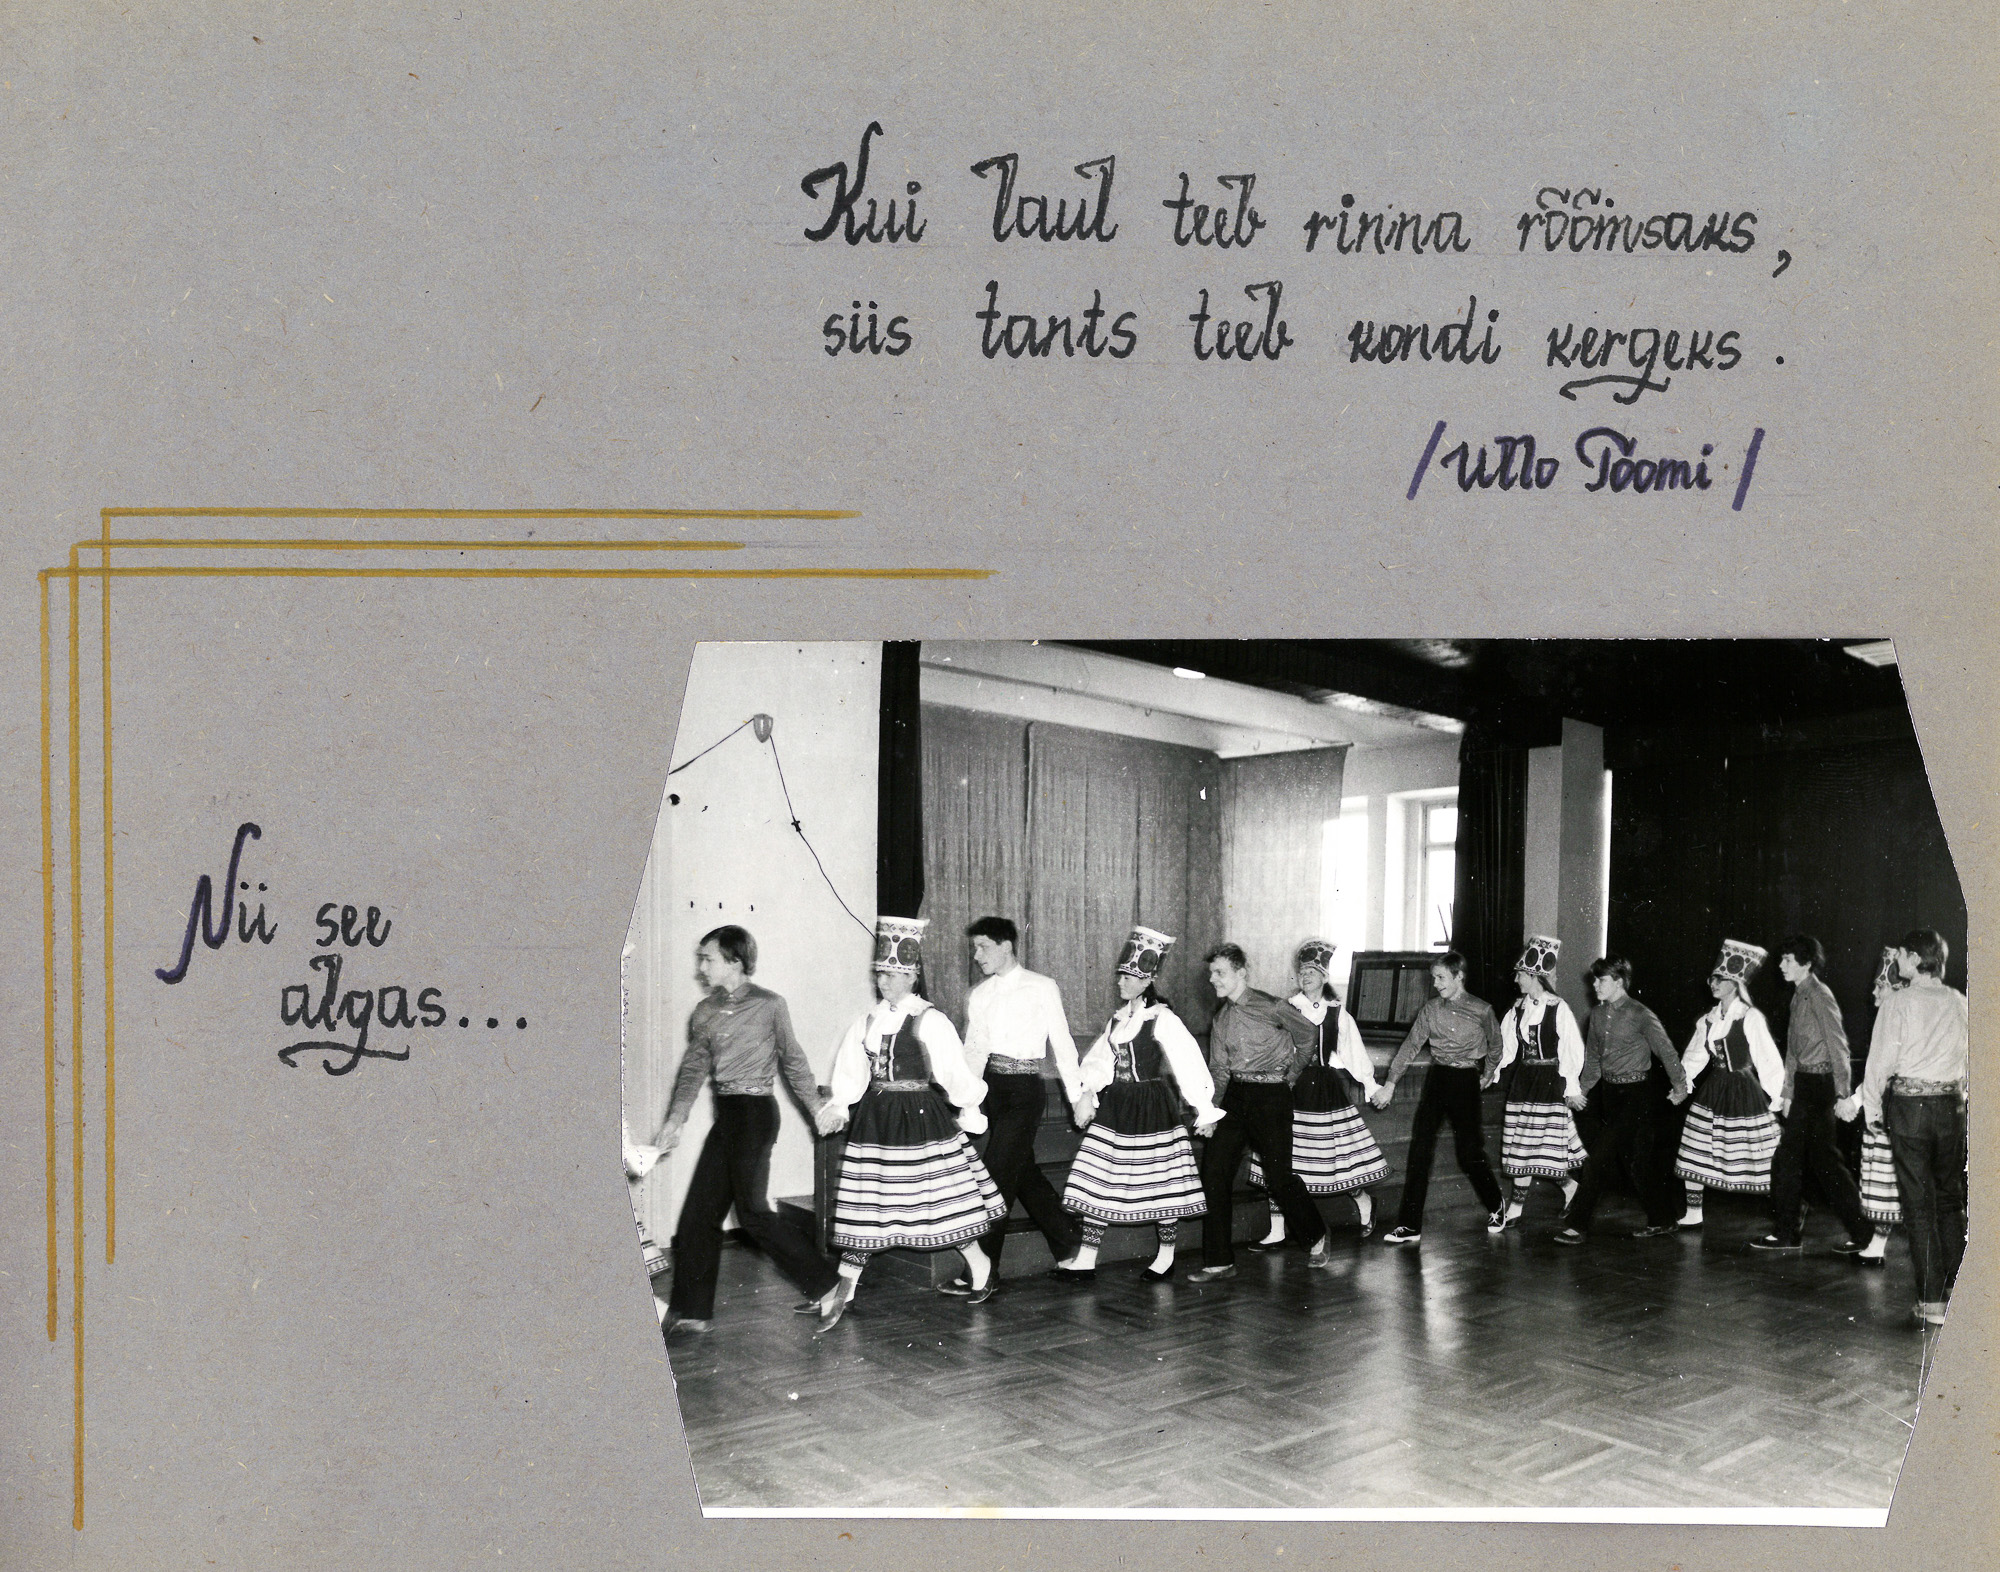 Kui laul teeb rinna rõõmsaks,
siis tants teeb kondi kergeks.
/Ullo Toomi/
Nii see
algas...